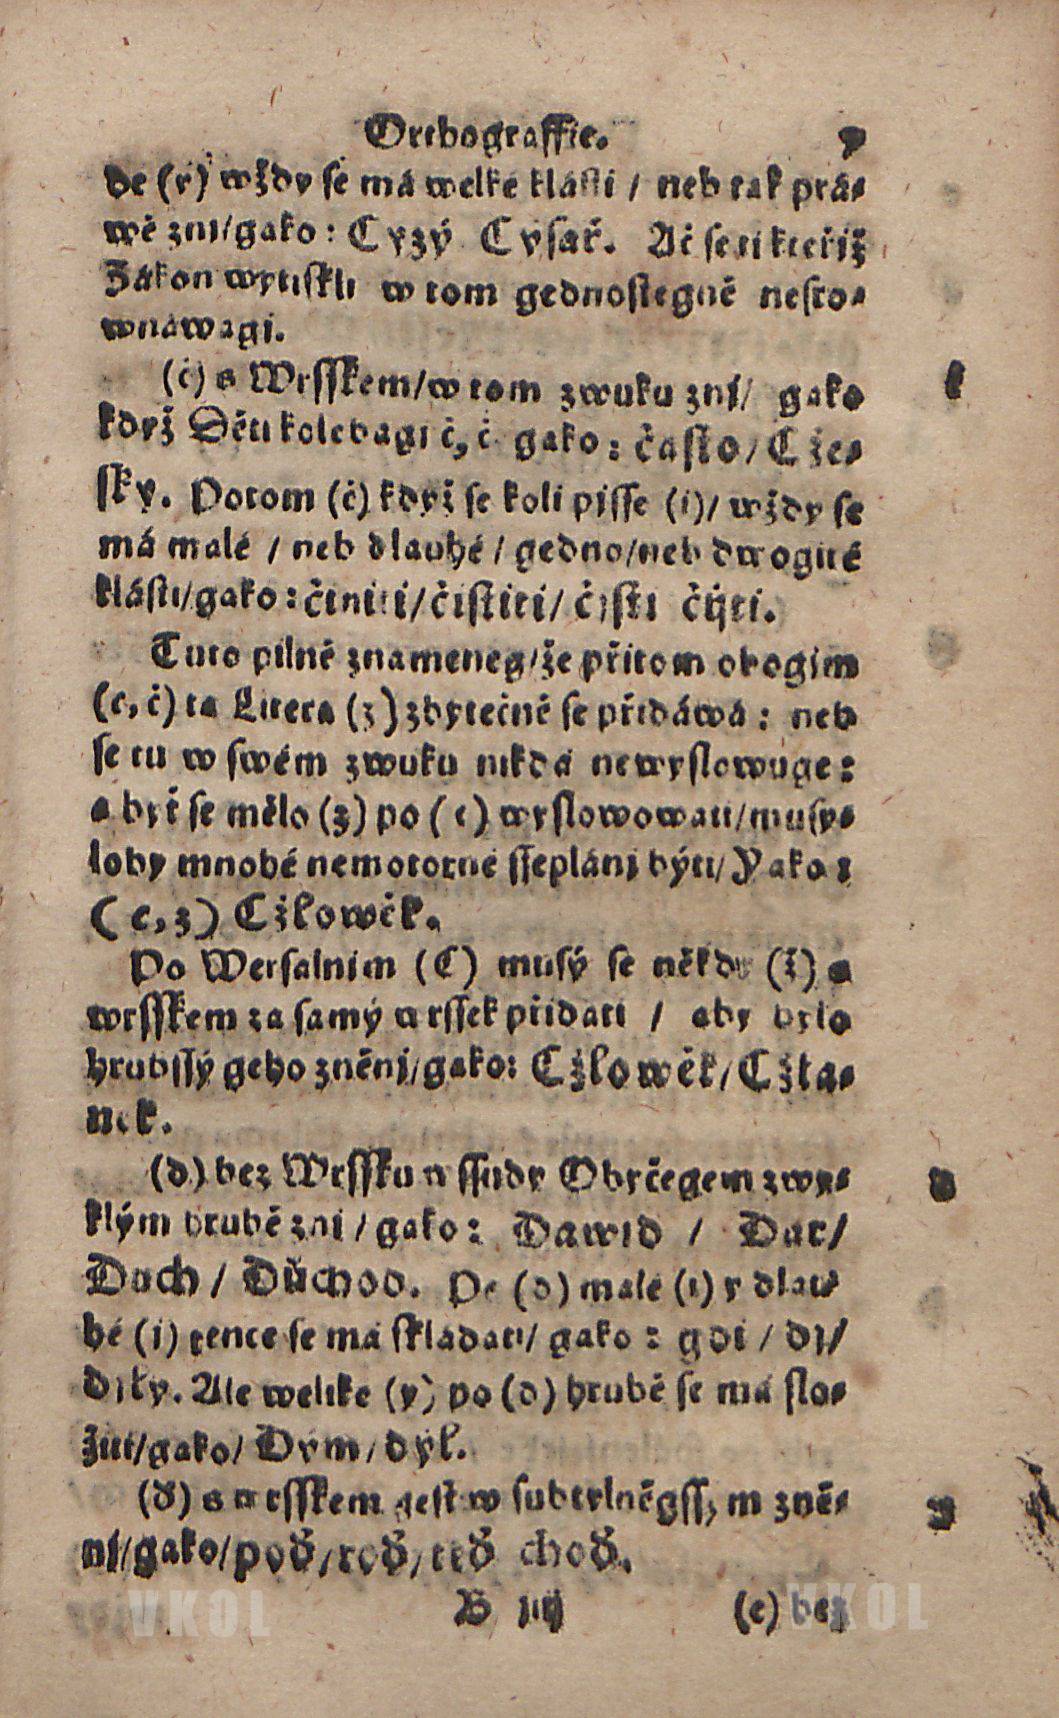 Orthograffie. 7
de (y) wždy se má welké klásti / neb tak prá⸗
wě znj/gako: Cyzý Cysař. Ač se ti kteřjž
Zákon wytiskli w tom gednostegně nesro⸗
wnáwagi.
(č) s Wrsskem/w tom zwuku znj/ gako
když Děti kolebagi č, č gako: často/ Cže⸗
sky. Potom (č) když se koli pisse (i)/ wždy se
má malé / neb dlauhé / gedno/neb dwogité
klásti/gako: činiti/čistiti/ čjsti čijti.
Tuto pilně znameneg/že přitom obogim
(c, č) ta Litera (z) zbytečně se přidáwá: neb
se tu w swém zwuku nikdá newyslowuge:
a byť se mělo (z) po (c) wyslowowati/musy⸗
loby mnohé nemotorné sseplánj býti/ Yako:
(c, z) Cžlowěk.
Po Wersalnim (C) musý se někdy (ž) s
wrsskem za samý wrssek přidati / aby bylo
hrubssý geho zněnj/gako: Cžlowěk/ Cžla⸗
nek.
(d) bez Wrssku wssudy Obyčegem zwy⸗
klým hrubě zni / gako: Dawid / Dar/
Duch / Důchod. Po (d) malé (i) y dlau⸗
hé (i) tence se má skládati/ gako: gdi / dj/
djky. Ale weliké (y) po (d) hrubě se má slo⸗
žiti/gako/ Dým/dýl.
(ď) s wrsskem gest w subtylněgssjm zně⸗
nj/gako/poď/roď/teď choď.
B iiij (e) bez
c
d
VKOL
VKOL